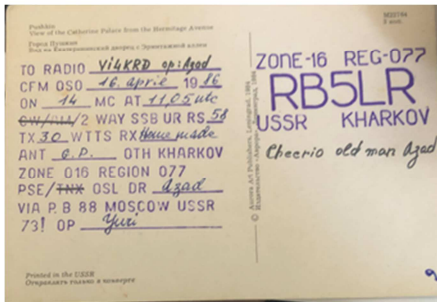 Pushkin
View of the Catherine Palace from the Hermitage Avenue
Город Пушкин
Вид на Екатерининский дворец с Эрмитажной аллеи
TO RADIO VI4KRD op: Azad
CFM QSO 16. aprie 1986
ON 14 MC AT 11.05 utc
CW/FM/2 WAY SSB UR RS 58
TX 30 WTTS RX Home made
ANT G.P. OTH KHARKOV
ZONE 016 REGION 077
PSE/TNX OSL DR Azad
VIA P.B 88 MOSCOW USSR
73! OP Yuri
Printed in the USSR
Отправлять только в конверте
© Aurora Art Publishers, Leningrad, 1984
Издательство «Аврора», Ленинград, 1984
5 коп.
ZONE-16 REG-077
RB5LR
USSR KHARKOV
Cheerio old man Azad